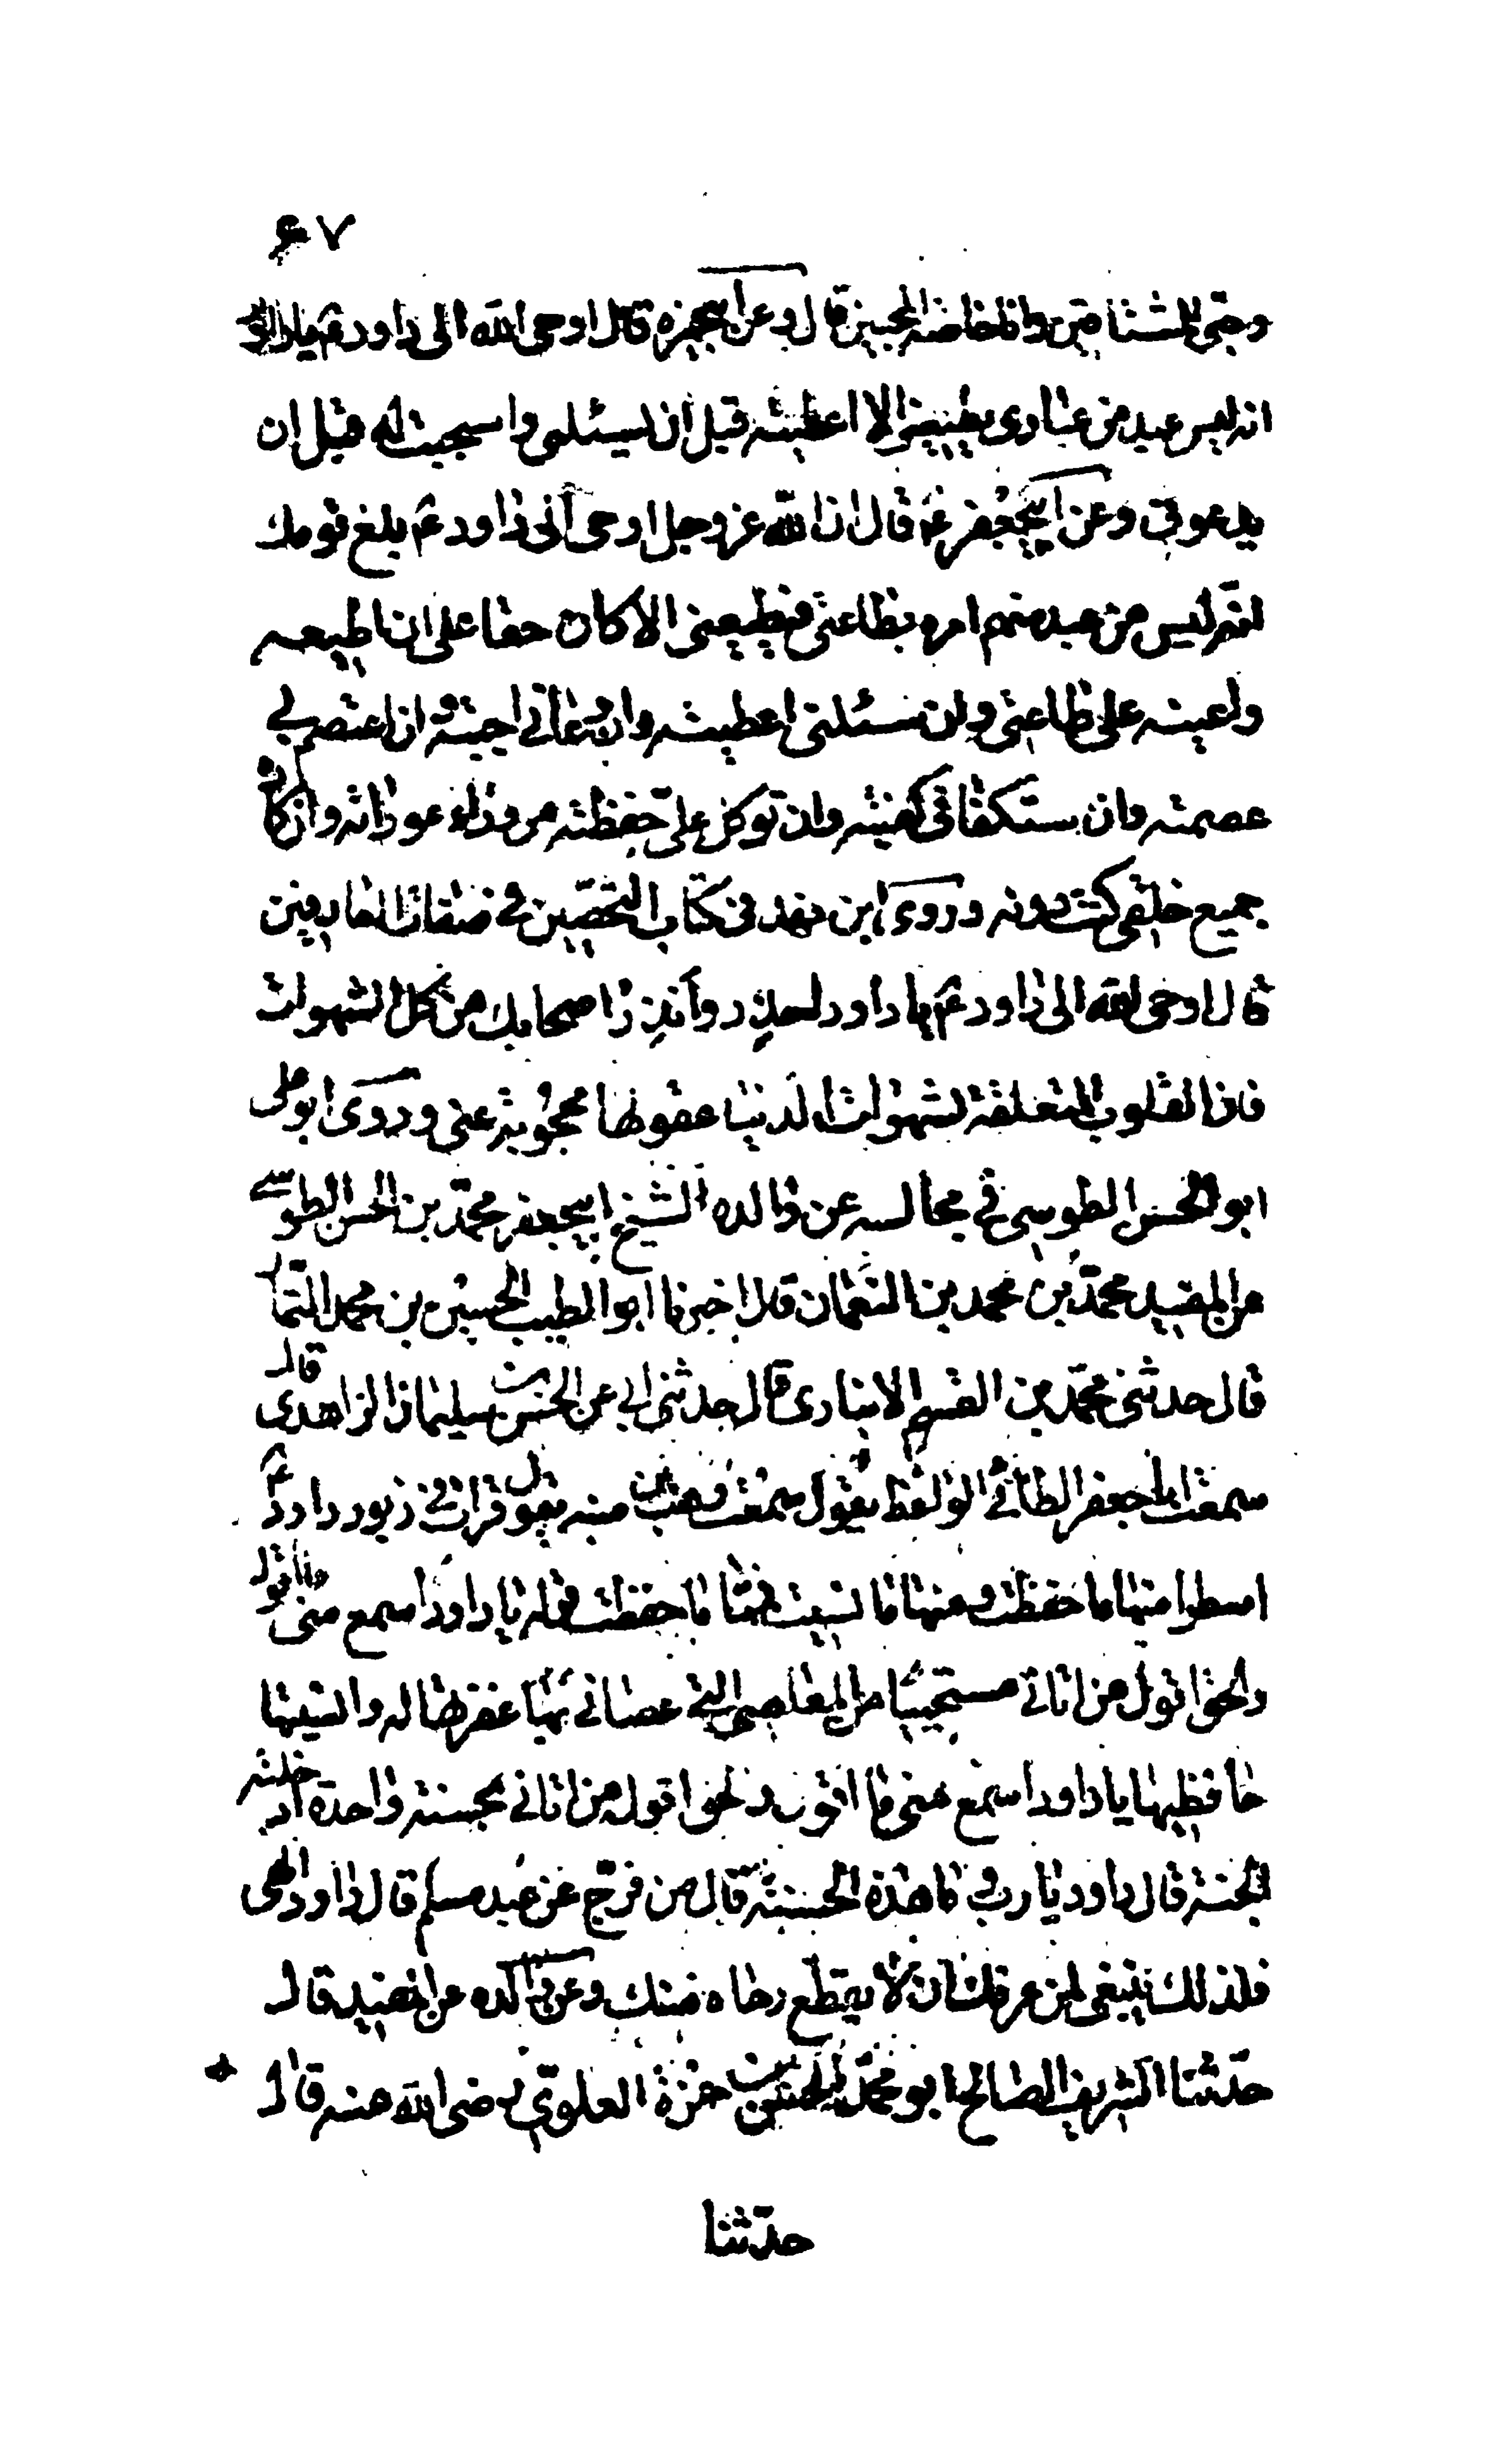 ٦٧
وحتى للمشتاقين وانا خاصة للمحبين قال وعن ابيحمزه قال اوحى الله الى داود ع يا داود
انه ليس عبد من عبادى يطيعنى الا اعطيته قبل ان يسئلنى واستجيب له قبل ان
يدعونى وعن ابيجعفر ع قال ان الله عز وجل اوحى الى داود ع بلغ قومك
انه ليس من عبد منهم امره بطاعتى فيطيعنى الا كان حقا على ان اطيعه
واعينه على طاعتى وان سئلنى اعطيته وان دعانى اجبته وان اعتصم بى
عصمته وان ستكفانى كفيته وان توكل على حفظته من وراء عوراته وان كاده
جميع خلقى كنت دونه وروى ابن فهد فى كتاب التحصين فى صفات العارفين
قال اوحى الله الى داود ع يا داود احذر وانذر اصحابك من كل الشهوات
فان القلوب المتعلقة لشهوات الدنيا عقولها محجوبة عنى وروى ابو على
ابو الحسن الطوسى فى مجالسه عن والده الشيخ ابيجعفر محمد بن الحسن الطوسى
عن المفيد محمد بن محمد بن النعمان قال اخبرنا ابو الطيب الحسين بن محمد التمار
قال حدثنى محمد بن القسم الانبارى قال حدثنى ابى عن الحسن بن سليمان الزاهدى قال
سمعت ابا جعفر الطائى الواعظ يقول سمعت وهب بن منبه يقول قرات فى زبور داود ع
اسطرا منها ما حفظت ومنها ما نسيت فمما ما حفظت قوله يا داود اسمع منى ما اقول
والحق اقول من اتانى مستحييا من المعاصى التى عصانى بها غفرتها له وانسيتها
حافظيها يا داود اسمع منى ما اقول والحق اقول من اتانى بحسنة واحدة ادخلته
الجنة قال داود يا رب وما هذه الحسنة قال من فرج عن عبد مسلم قال داود الهى
فلذلك ينبغى لمن عرفك ان لا يقطع رجاه منك وعن والده عن المفيد قال
حدثنا الشريف الصالح ابو محمد الحسن بن حمزة العلوى رضى الله عنه قال
حدثنا